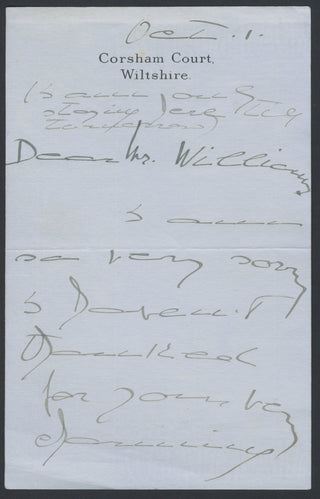 Oct. 1.
Corsham Court,
Wiltshire.
I am only
staying here till
tomorrow
Dear Mr. Williams
I am
so very sorry
I haven't
thanked
for your very
charming